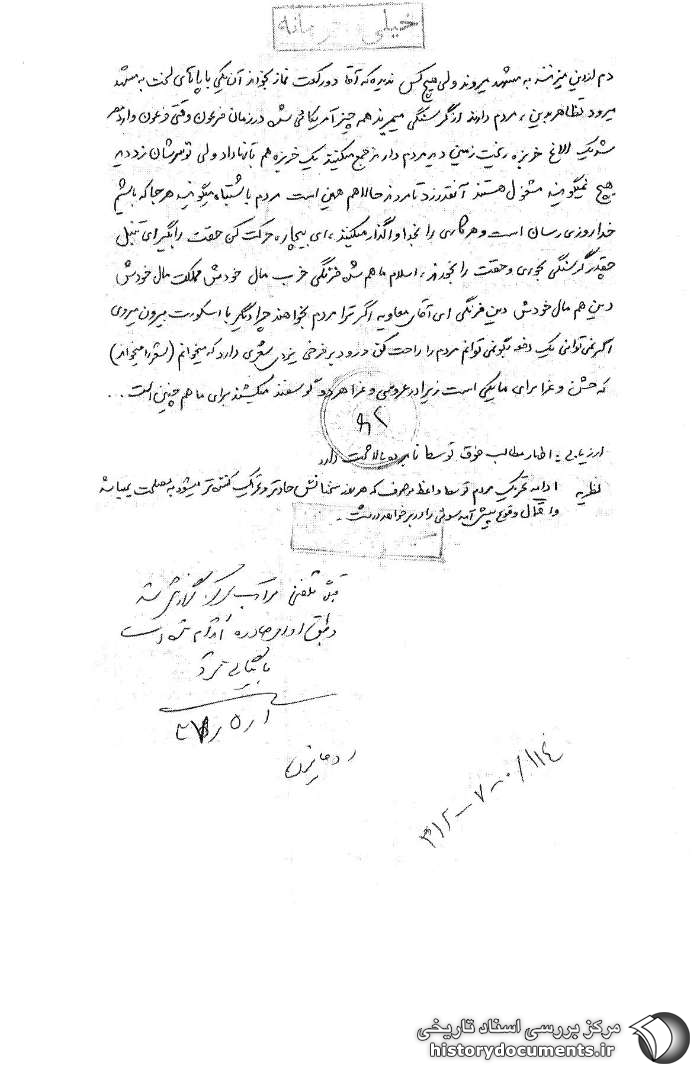 خیلی محرمانه
دم از دین میزنند به مشهد میروند ولی هیچ کس ندیده که آقا دو رکعت نماز بخواند آن یکی با پاهای لخت به مشهد
میرود تظاهر بدین، مردم دارند از گرسنگی میمیرند همه چیز آمریکائی شده در زمان فرعون وقتی فرعون وارد مصر
شد یک الاغ خربزه ریخت زمین دید مردم دارند جمع میکنند یک خربزه هم بآنها داد ولی توسرشان زد دید
هیچ نمیگویند مشغول هستند آنقدر زد تا مردند حالا هم همین است مردم باشتباه میگویند هر جا که باشیم
خدا روزی رسان است و هر کاری را بخدا واگذار میکنند، ای بیچاره حرکت کن حقت را بگیر ای تنبل
چقدر گرسنگی بخوری و حقت را بخورند، اسلام ما هم شده فرنگی حزب مال خودش مملکت مال خودش
دین هم مال خودش دین فرنگی ای آقای معاویه اگر ترا مردم بخواهند چرا دیگر با اسکورت بیرون میروی
اگر نمی توانی یک دفعه بگو نمی توانم مردم را راحت کن و زود برو فرخی یزدی شعری دارد که میخوانم (شعر را میخواند)
که جشن و عزا برای ما یکی است زیرا در عروسی و عزا هر دو گوسفند میکشند برای ما هم چنین است ...
ارزیابی: اظهار مطالب فوق توسط نامبرده بالا صحت دارد
نظریه ادامه تحریک مردم توسط واعظ معروف که هر روز سخنانش حادتر و تحریک کننده تر میشود به مصلحت نمیباشد
و احتمال وقوع پیش آمد سوئی را در بر خواهد داشت.
قبلا تلفنی مراتب بمرکز گزارش شد
و طبق اوامر صادره اقدام شده است
بایگانی شود
۳۱۲-۷-۰/۱۱۴
مرکز بررسی اسناد تاریخی
historydocuments.ir